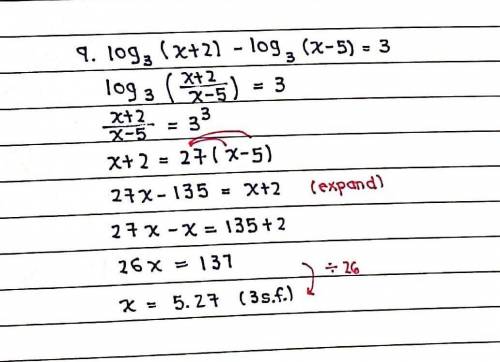 9. log₃ (x+2) - log₃ (x-5) = 3
log₃ (x+2/x-5) = 3
x+2/x-5 = 3³
x+2 = 27(x-5)
27x-135 = x+2 (expand)
27x-x = 135+2
26x = 137 ÷26
x = 5.27 (3s.f.)